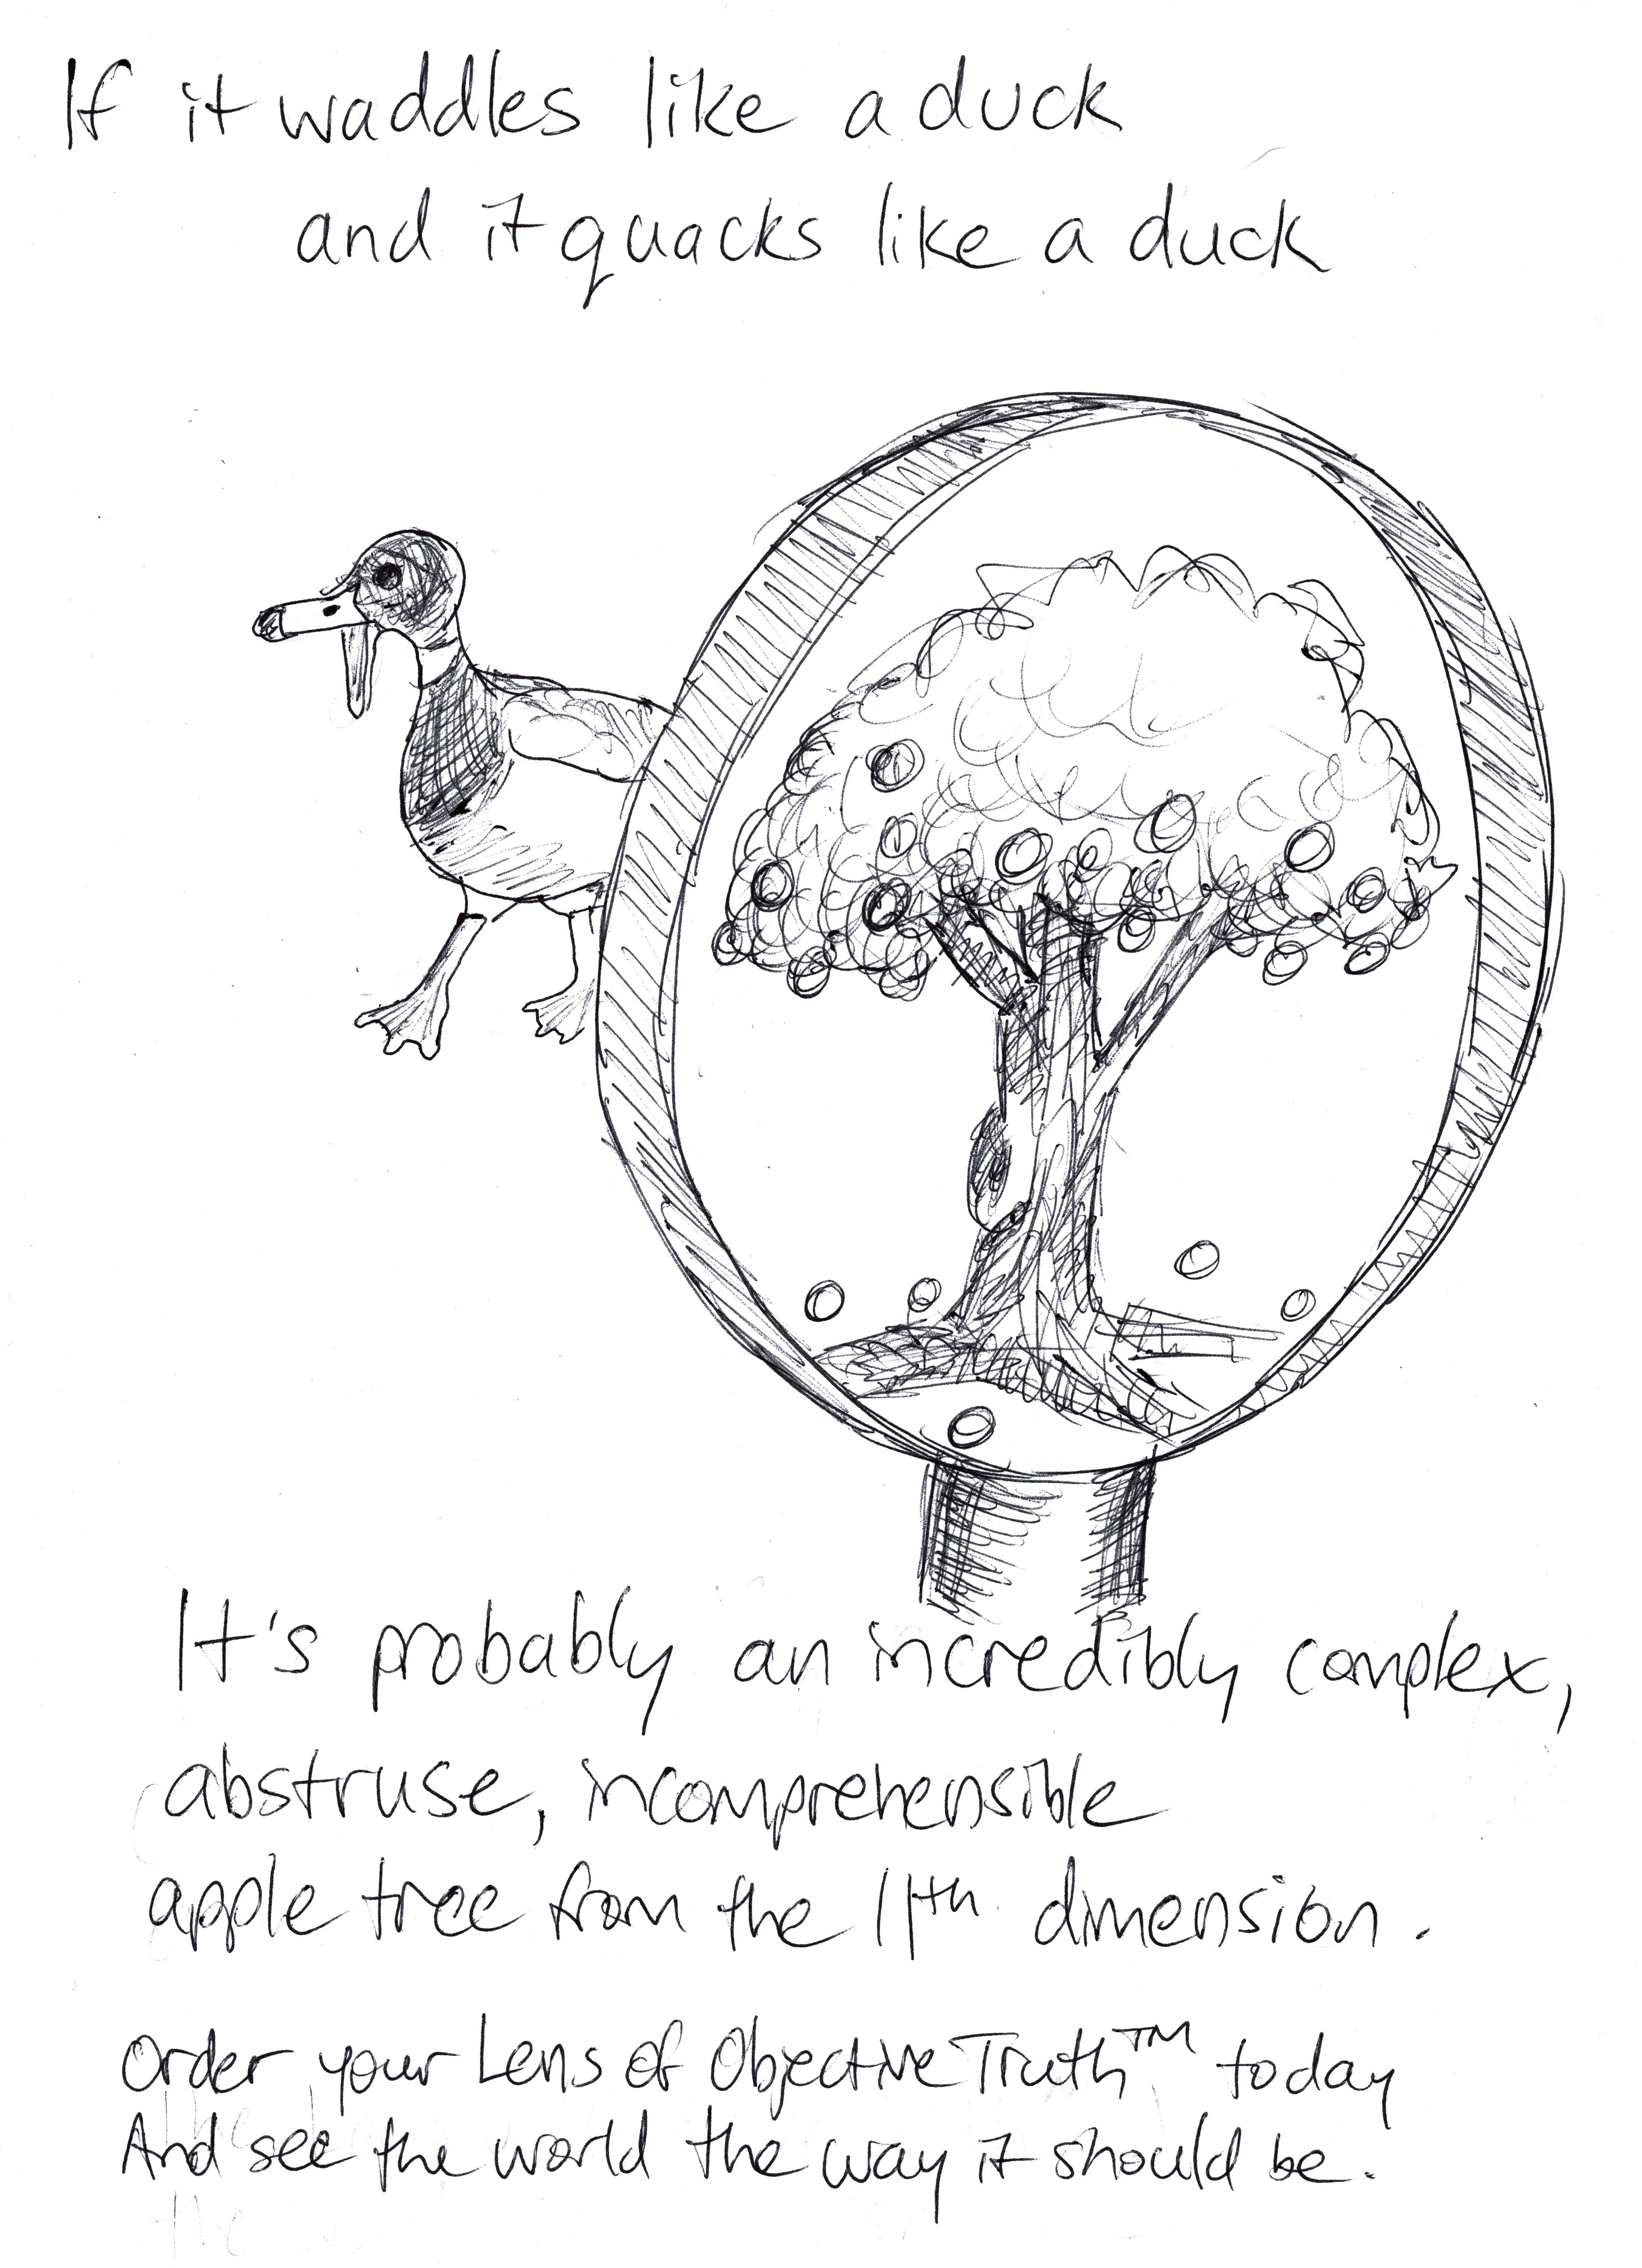 If it waddles like a duck
and it quacks like a duck
It's probably an incredibly complex,
abstruse, incomprehensible
apple tree from the 11th dimension.
Order your Lens of Objective Truth™ today
And see the world the way it should be.